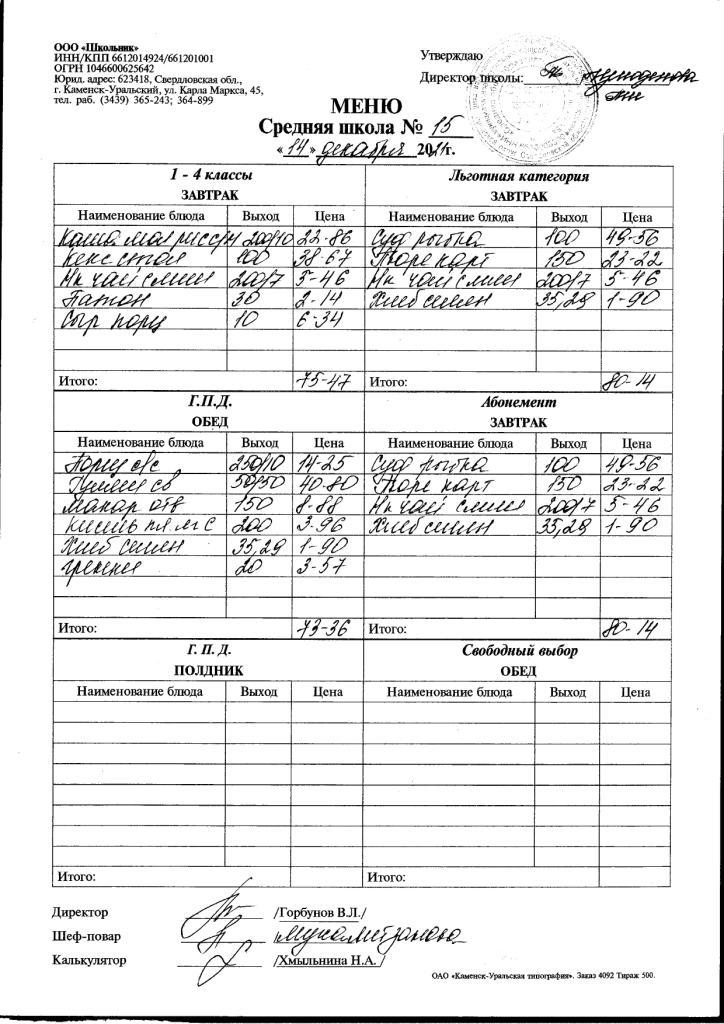 ООО «Школьник»
ИНН/КПП 6612014924/661201001
ОГРН 1046600625642
Юрид. адрес: 623418, Свердловская обл.,
г. Каменск-Уральский, ул. Карла Маркса, 45,
тел. раб. (3439) 365-243; 364-899
Утверждаю
Директор школы:
МЕНЮ
Средняя школа № 15
«14» декабря 2021г.
1 - 4 классы Льготная категория
ЗАВТРАК ЗАВТРАК
Наименование блюда Выход Цена Наименование блюда Выход Цена
Каша мол 200/10 22-86 Суд рыбка 100 49-56
Кекс стол 100 38-67 Пюре карт 150 23-22
Нк чай слим 200/7 5-46 Нк чай слим 200/7 5-46
Батон 30 2-14 Хлеб 35,29 1-90
Сыр порц 10 6-34
Итого: 75-47 Итого: 80-14
Г.П.Д. Абонемент
ОБЕД ЗАВТРАК
Наименование блюда Выход Цена Наименование блюда Выход Цена
Борщ с/с 250/10 14-25 Суд рыбка 100 49-56
Гуляш св 50/50 40-80 Пюре карт 150 23-22
Макар отв 150 8-88 Нк чай слим 200/7 5-46
Кисель 200 3-96 Хлеб 35,29 1-90
Хлеб 35,29 1-90
гренки 20 3-57
Итого: 73-36 Итого: 80-14
Г. П. Д. Свободный выбор
ПОЛДНИК ОБЕД
Наименование блюда Выход Цена Наименование блюда Выход Цена
Итого: Итого:
Директор /Горбунов В.Л./
Шеф-повар
Калькулятор /Хмыльнина Н.А. /
ОАО «Каменск-Уральская типография». Заказ 4092 Тираж 500.